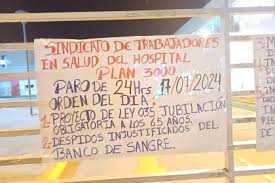 SINDICATO DE TRABAJADORES
EN SALUD DEL HOSPITAL
PLAN 3000
PARO DE 24Hrs. 17/01/2024
ORDEN DEL DIA:
1. PROYECTO DE LEY 035 JUBILACIÓN
OBLIGATORIA A LOS 65 AÑOS.
2. DESPIDOS INJUSTIFICADOS DEL
BANCO DE SANGRE.